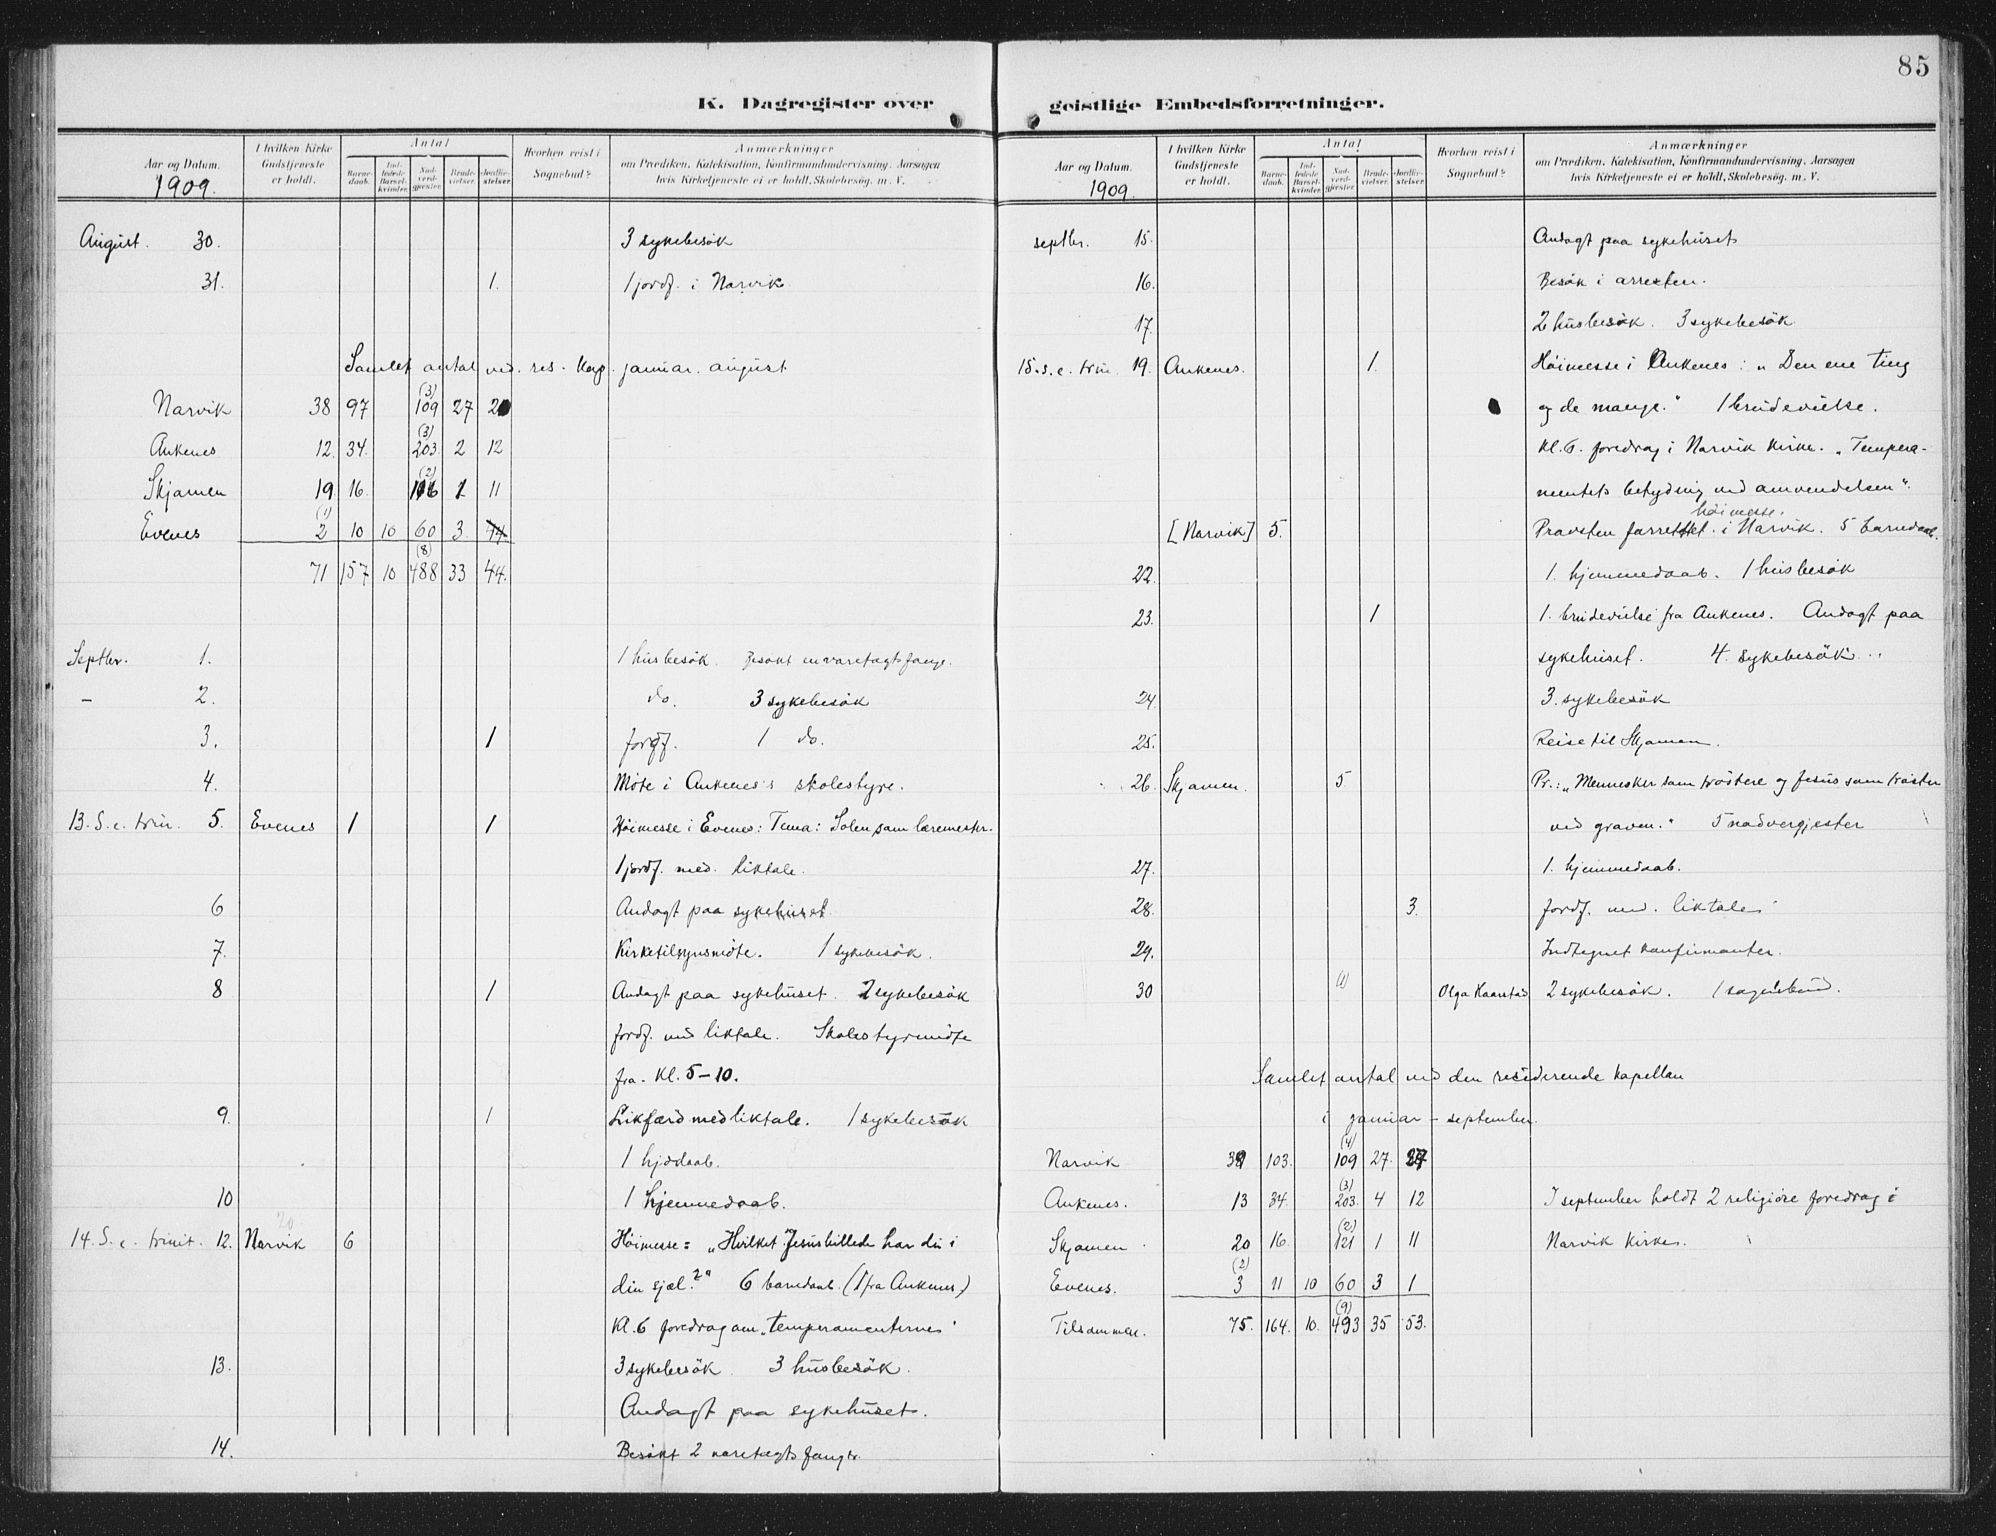 85
K. Dagregister over
Aar og Datum.
1909.
I hvilken Kirke Gudstjeneste er holdt.
Antal
Barne-daab.
Ind-ledede Barsel-kvinder.
Nad-verd-gjester
Brude-vielser.
Jordfæ-stelser
Hvorhen reist i Sognebud?
Anmærkninger
om Prædiken, Katekisation, Konfirmandundervisning, Aarsagen
hvis Kirketjeneste ei er holdt, Skolebesög. m. V.
August. 30. 3 sykebesök
31. 1. 1 jordf. i Narvik
Samlet antal ved. res. kap. januar. august.
(3)
Narvik 38 97 109 27 20
(3)
Ankenes 12. 34. 203 2 12
(2)
Skjomen 19 16. 116 1 11
(1)
Evenes 2 10 10 60 3
(8)
71 157 10 488 33 44.
Septbr. 1. 1 husbesök. Besökt en varetægtsfange.
– 2. do. 3 sykebesök
3. 1 jordf. 1 do.
4. Möte i Ankenes's skolestyre.
13. S. e. trin. 5. Evenes 1 1 Höimesse i Evenes: Tema: Solen som læremester.
1 jordf. med. liktale.
6 Andagt paa sykehuset.
7. Kirketilsynsmöte. 1 sykebesök.
8 1 Andagt paa sykehuset. 2 sykebesök
jordf. med liktale. Skolestyremöte
fra. kl. 5–10.
9. 1 Likfærd med liktale. 1 sykebesök
1 hjdaab.
10 1 hjemmedaab.
14. S. e. trinit. 12. Narvik 6 Höimesse: „Hvilket Jesusbillede har du i
din sjæl?" 6 barnedaab. (1 fra Ankenes)
Kl. 6 foredrag om „temperamenternes"
13. 3 sykebesök. 3 husbesök.
Andagt paa sykehuset.
14. Besökt 2 varetægtsfanger.
geistlige Embedsforretninger.
Aar og Datum.
1909.
I hvilken Kirke Gudstjeneste er holdt.
Antal
Barne-daab.
Ind-ledede Barsel-kvinder.
Nad-verd-gjester
Brude-vielser.
Jordfæ-stelser
Hvorhen reist i Sognebud?
Anmærkninger
om Prædiken, Katekisation, Konfirmandundervisning, Aarsagen
hvis Kirketjeneste ei er holdt, Skolebesög. m. V.
septbr. 15. Andagt paa sykehuset
16. Besök i arresten.
17. 2 husbesök. 3 sykebesök
15. s. e. trin. 19. Ankenes. 1. Höimesse i Ankenes: „Den ene ting
og de mange." 1 brudevielse.
Kl. 6. foredrag i Narvik kirke. „Tempera-
mentets betydning ved omvendelsen".
höimesse.
[Narvik] 5. Provsten forrettet. i Narvik. 5 barnedaab.
22. 1. hjemmedaab. 1 husbesök
23. 1 1. brudevielse fra Ankenes. Andagt paa
sykehuset. 4. sykebesök
24. 3. sykebesök
25. Reise til Skjomen.
26. Skjomen. 5. Pr.: „Mennesker som tröstere og Jesus som tröster
ved graven." 5 nadvergjester
27. 1. hjemmedaab.
28. 3. jordf. med. liktale
29. Indtegnet konfirmanter.
30 (1) Olga Haarstad 2 sykebesök. 1 sognebud.
Samlet antal ved den residerende kapellan
i januar – september.
(4)
Narvik 39 103. 109 27.
(3)
Ankenes. 13 34. 203. 4 12 I september holdt 2 religiöse foredrag i
(2)
Skjomen 20 16. 121 1 11 Narvik kirke.
(2)
Evenes. 3 11 10 60 3 1
(9)
Tilsammen. 75. 164. 10. 493 35 53.